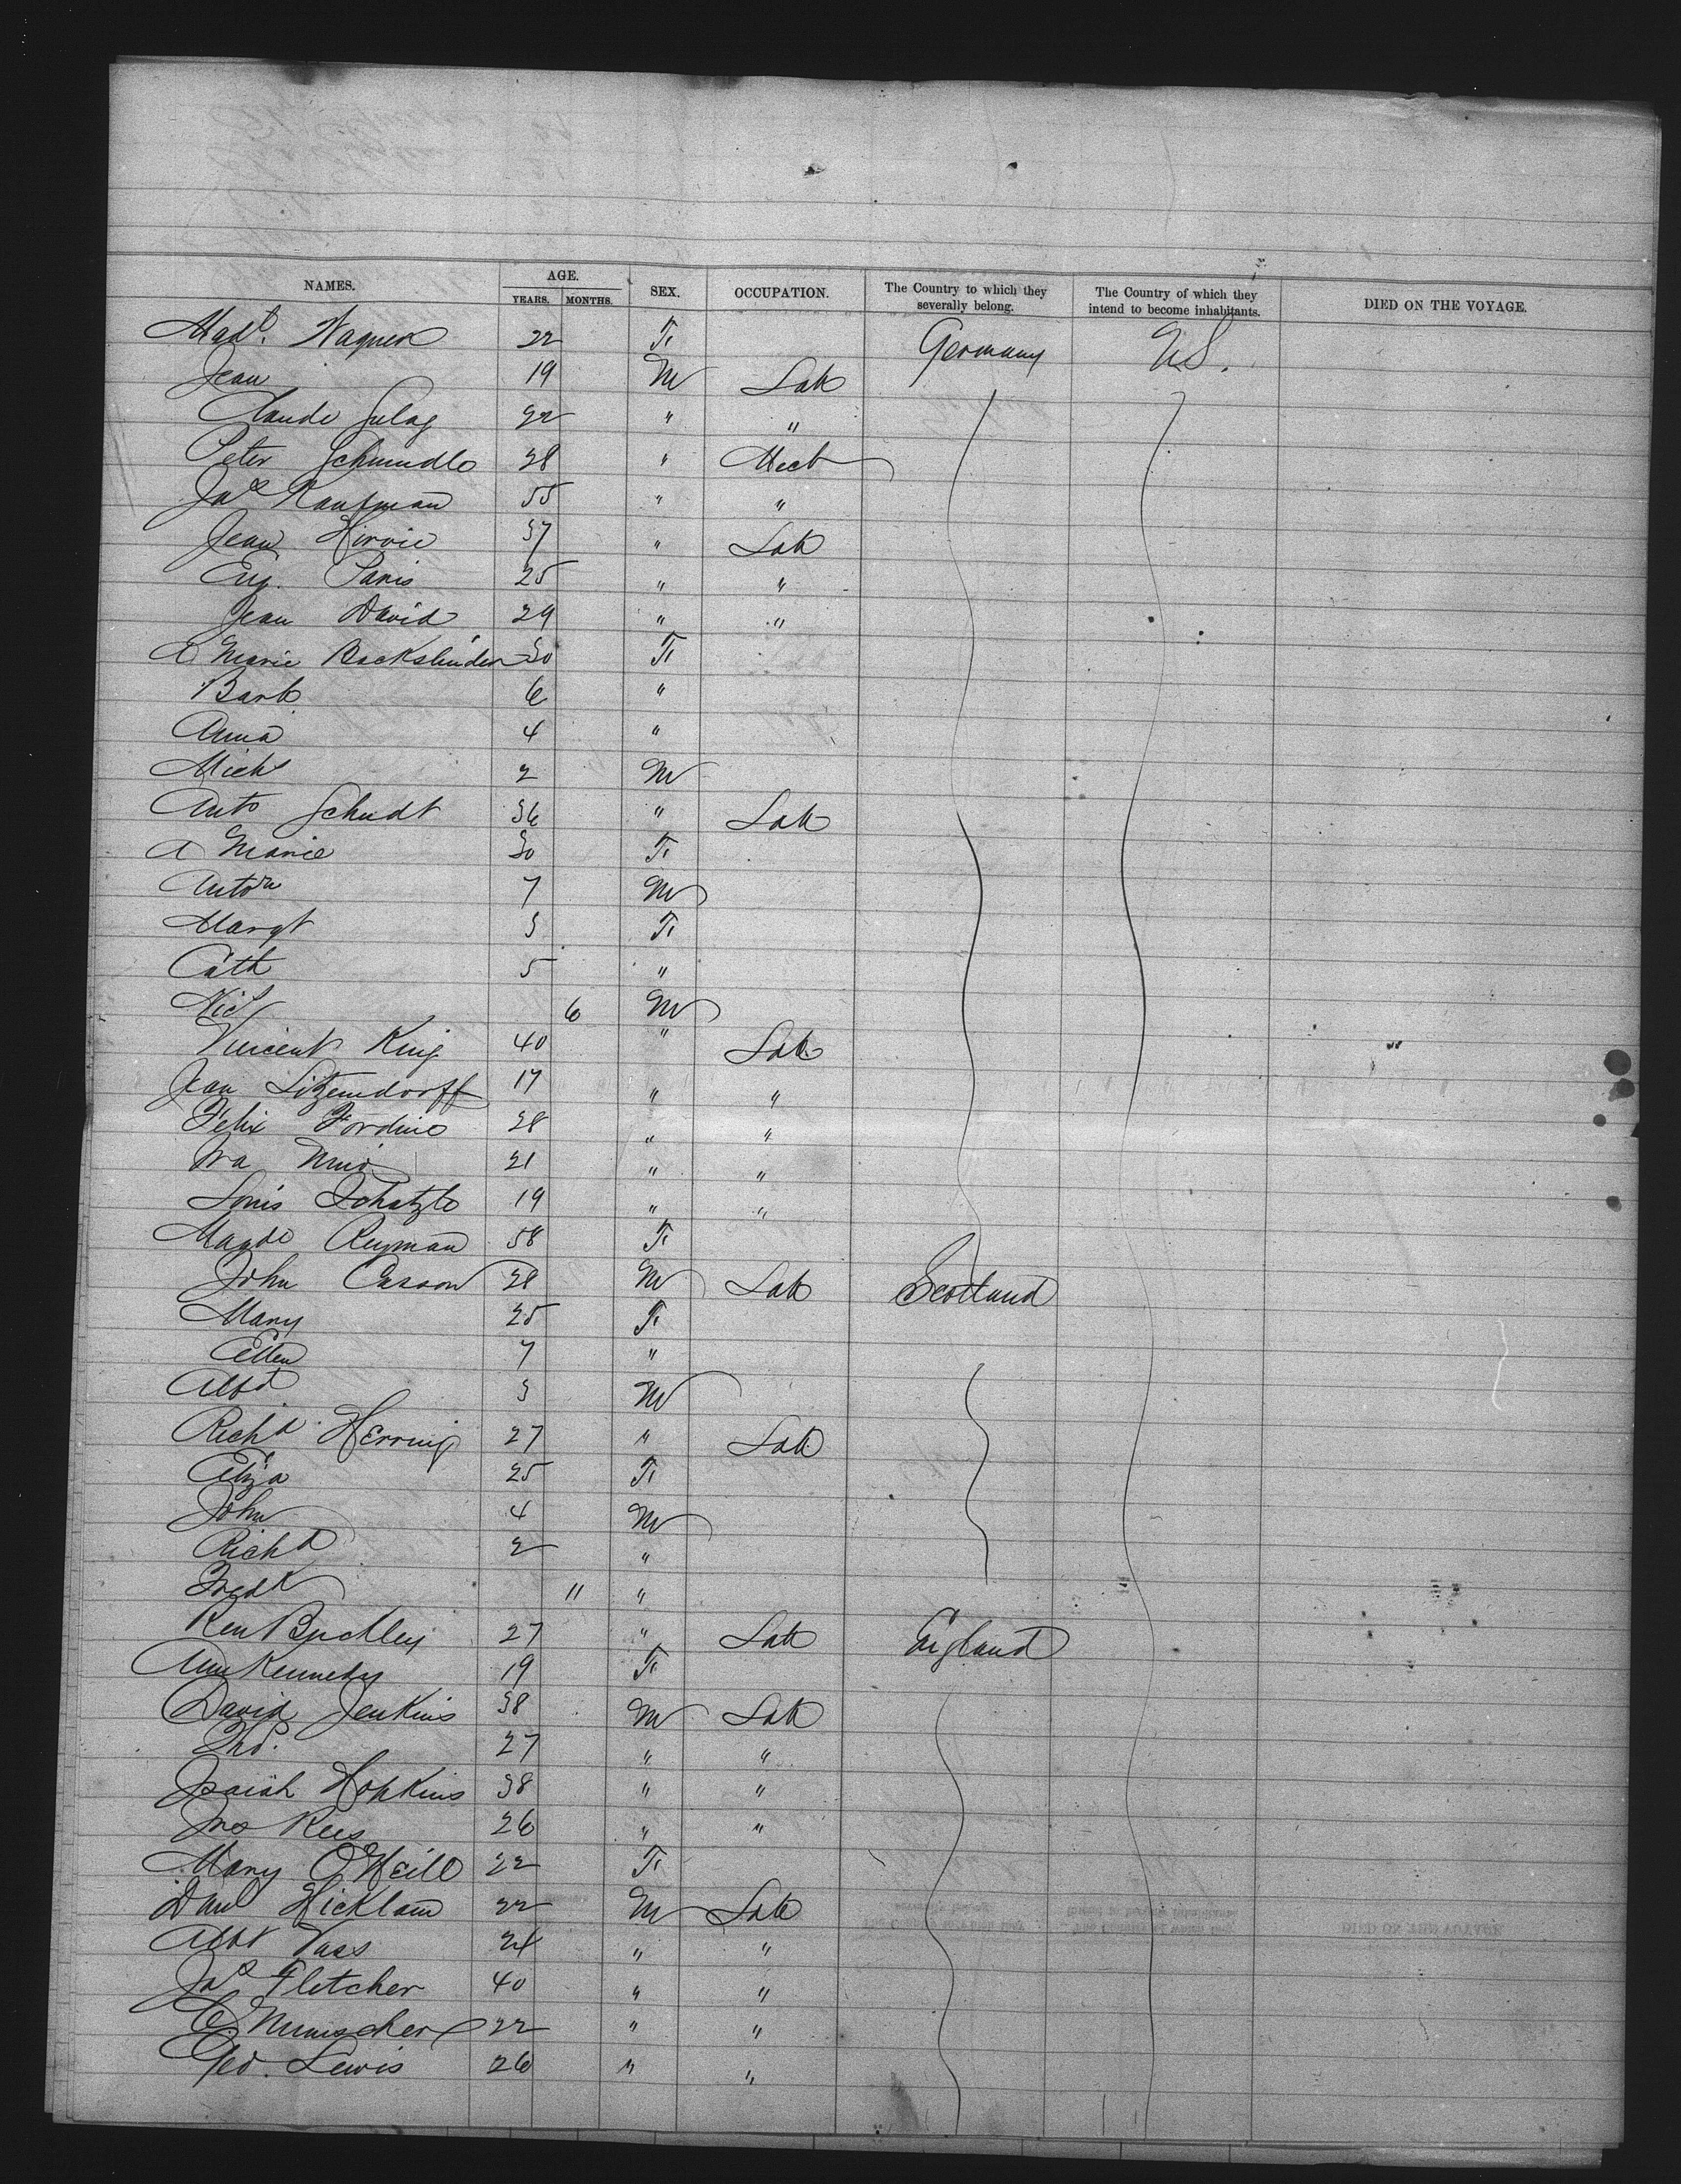 NAMES. AGE. YEARS. MONTHS. SEX. OCCUPATION. The Country to which they severally belong. The Country of which they intend to become inhabitants. DIED ON THE VOYAGE.
Mad. Wagner 22 F Germany U.S.
Jean 19 M Lab
Claude 22 " "
Peter Schmidle 38 " Mech
Jas Kaufman 55 " "
Jean 37 " Lab
Eug. Paris 25 " "
Jean David 29 " "
A Marie 30 F
Barb. 6 "
Anna 4 "
Mich 2 M
Anto Schudt 36 " Lab
A Marie 30 F
Anton 7 M
Margt 3 F
Cath 5 "
Nic 6 M
Vincent King 40 " Lab
Jean Litzendorff 17 " "
Felix Fordine 28 " "
21 " "
Louis Schatzle 19 " "
Magde Reyman 58 F
John Casson 28 M Lab Scotland
Mary 25 F
Ellen 7 "
Albt 3 M
Richd Herring 27 " Lab
Eliza 25 F
John 4 M
Richd 2 "
Fredk 11 "
Ken Buckley 27 " Lab England
Ann Kennedy 19 F
David Jenkins 38 M Lab
Tho. 27 " "
Isaiah Hopkins 38 " "
Jno Rees 26 " "
Mary O'Neill 22 F
Danl Hicklam 22 M Lab
Albt Vass 24 " "
Jas Fletcher 40 " "
22 " "
Geo. Lewis 26 " "